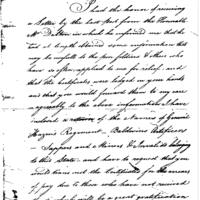 I had the honor of receiving
a Letter by the last Post from the Honorable
Mr Dalton in which he informed me that he
had at length obtained some information that
may be usefull to the poor fellows & others who
have so often applied to me for relief and
that the Certificates were lodged in your hands
and that you would forward them to my care
agreeably to the above information I have
inclosed a return of the Names of General
Hazen's Regiment — Baldwins Artificers
— Sappers and Miners & Invalids belonging
to this State — and have to request that you
would transmit the Certificates for the arrears
of pay due to those who have not received
which will be a great gratification